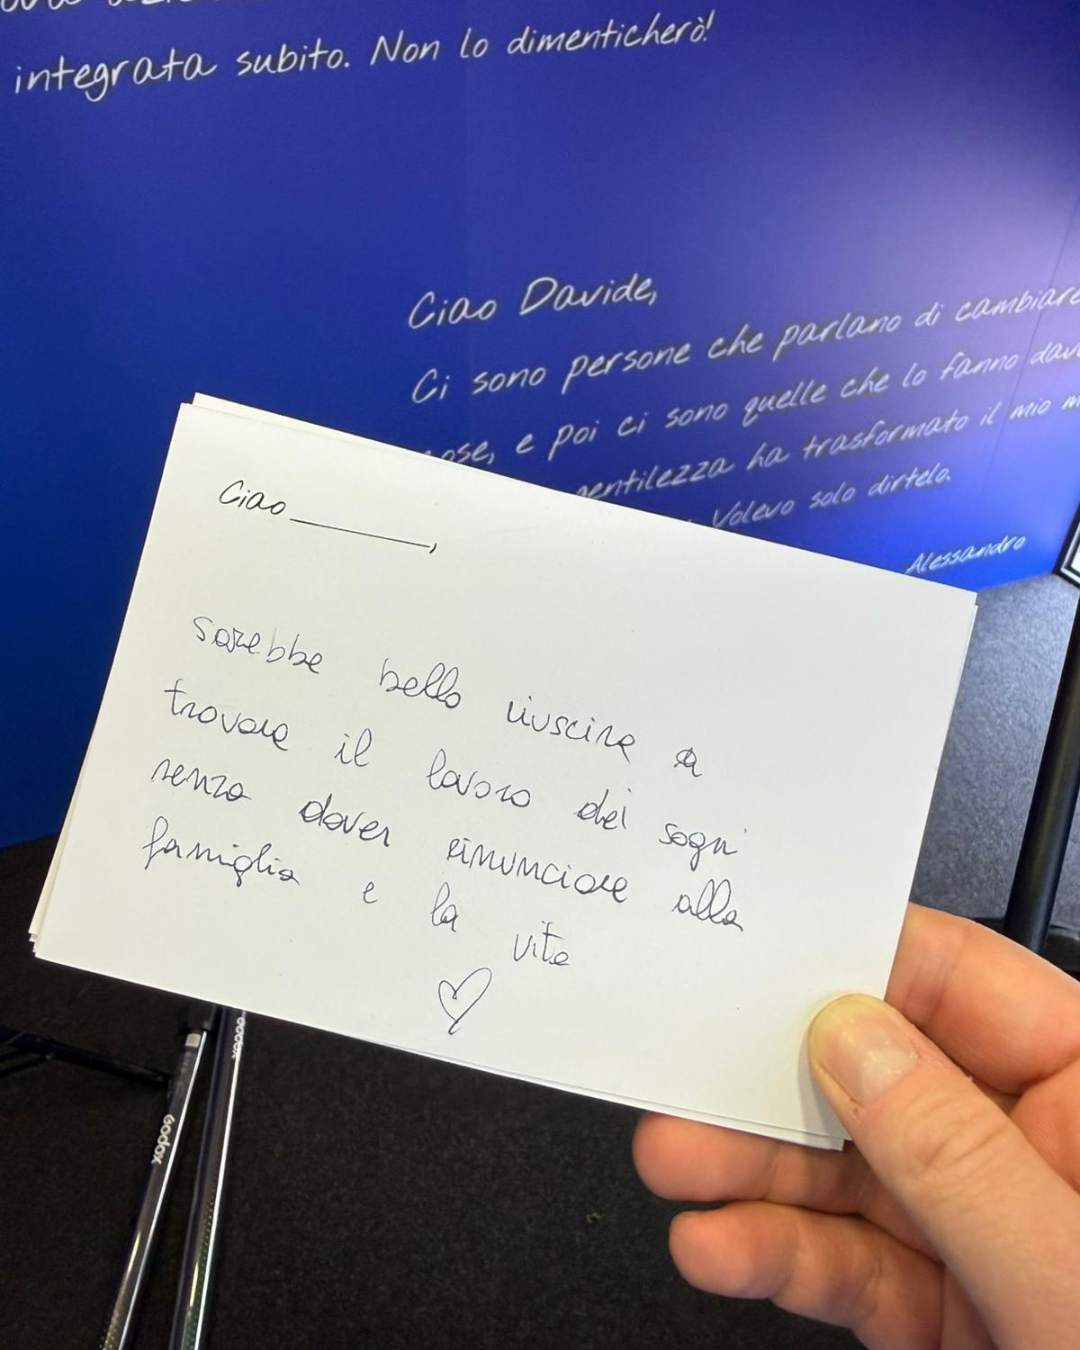 integrata subito. Non lo dimenticherò!
Ciao Davide,
Ci sono persone che parlano di cambiare
e poi ci sono quelle che lo fanno
ha trasformato il mio
Volevo solo dirtelo.
Alessandro
Ciao ________,
sarebbe bello riuscire a
trovare il lavoro dei sogni
senza dover rinunciare alla
famiglia e la vita
Godox
Godox